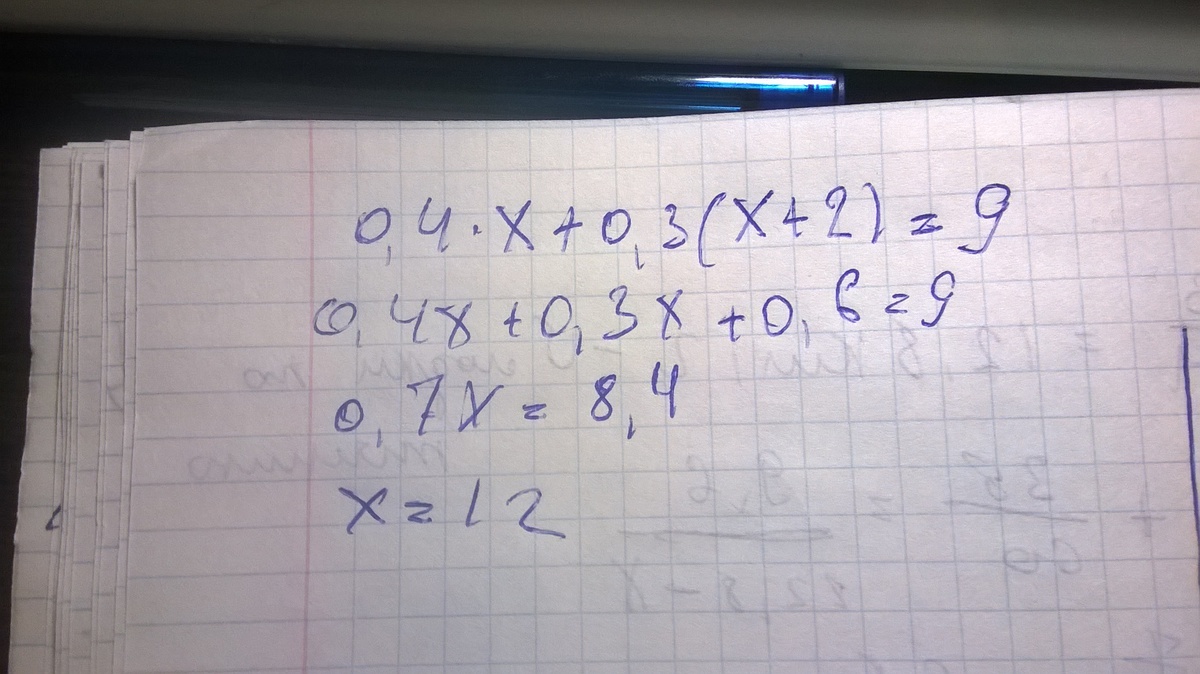 0,4·x+0,3(x+2)=9
0,4x+0,3x+0,6=9
0,7x=8,4
x=12